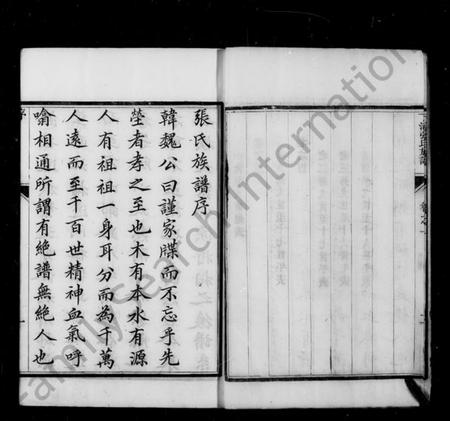 張氏族譜序
韓魏公曰謹家牒而不忘乎先
塋者孝之至也木有本水有源
人有祖祖一身耳分而為千萬
人遠而至千百世精神血氣呼
噏相通所謂有絕譜無絕人也
序
FamilySearch International